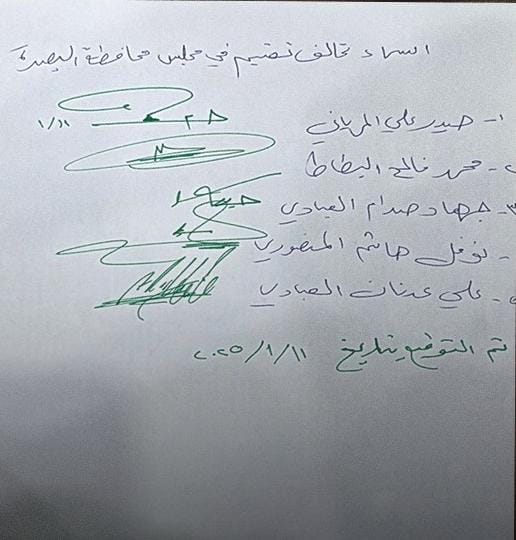 اسماء تحالف تصميم في مجلس محافظة البصرة
١- حيدر علي المرياني ١/١١
٢- محمد فالح البطاط
٣- جهاد صدام العبادي
- نوفل هاشم المنصوري
- علي عدنان العبادي
تم التوقيع بتاريخ ٢٠٢٥/١/١١